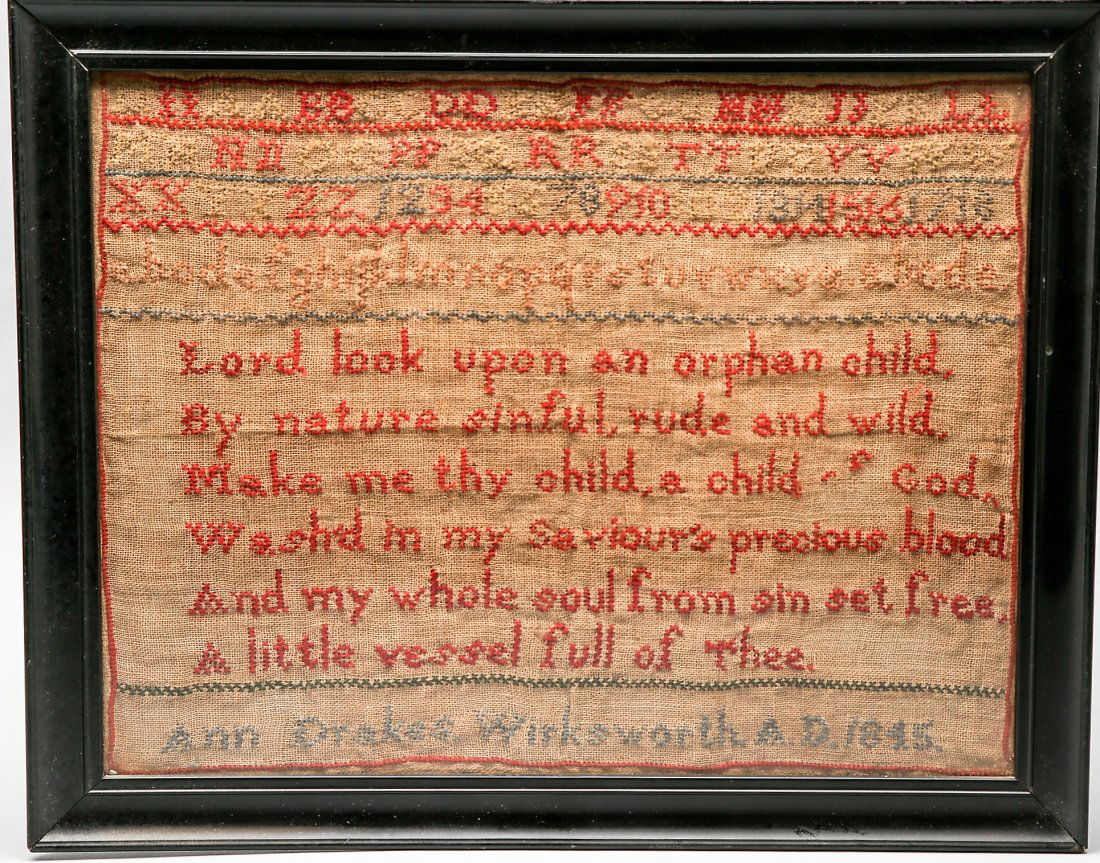 BB DD FF HH JJ LL
NN PP RR TT VV
XX ZZ 1234 78910 13141516171
Lord look upon an orphan child,
By nature sinful, rude and wild,
Make me thy child, a child of God,
Wash'd in my Saviour's precious blood
And my whole soul from sin set free,
A little vessel full of Thee.
Ann Drakes Wirksworth. A.D. 1845.